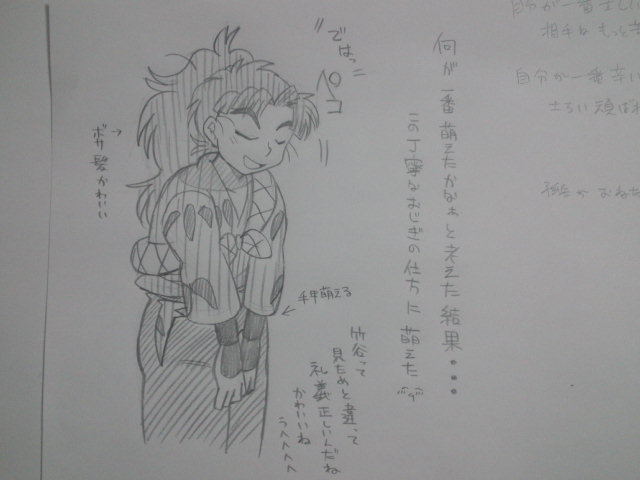 自分が一番
相手はもっと
自分が一番辛い
何が一番萌えたかなぁと考えた結果・・・
この丁寧なおじぎの仕方に萌えた
"ではっ"
ペコ
→
ボサ髪かわいい
←手甲萌える
竹谷って
見ためと違って
礼義正しいんだね
かわいいね
うへへへへ